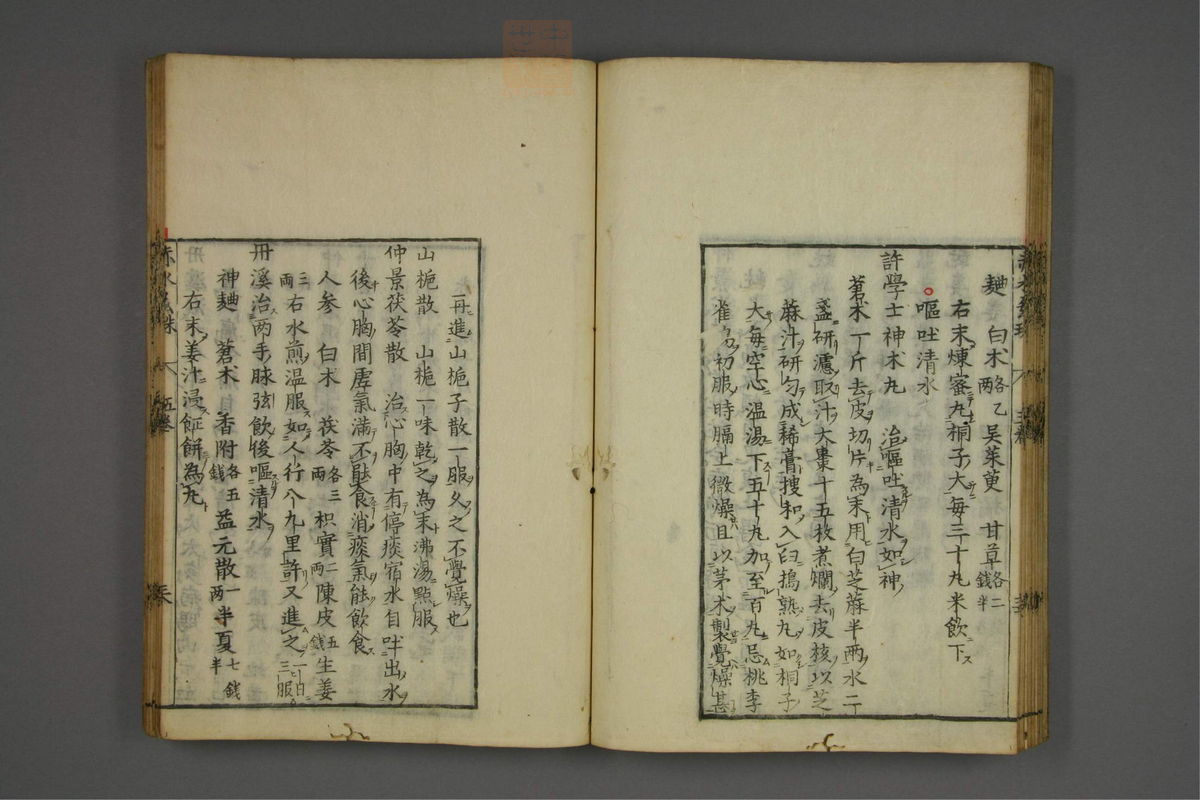 麯 白朮各乙兩 吳茱萸 甘草各二錢半
右末煉蜜丸桐子大每三十丸米飲下
嘔吐清水
許學士神朮丸 治嘔吐清水如神
蒼朮一斤去皮切片為末用白芝蔴半兩水二
盞研濾取汁大棗十五枚煮爛去皮核以芝
蔴汁研勻成稀膏搜和入臼搗熟丸如桐子
大每空心溫湯下五十丸加至百丸忌桃李
雀鴿初服時膈上微燥且以茅朮製覺燥甚
再進山梔子散一服久之不覺燥也
山梔散 山梔一味乾之為末沸湯點服
仲景茯苓散 治心胸中有停痰宿水自吐出水
後心胸間虛氣滿不能食消痰氣能飲食
人參 白朮 茯苓各三兩 枳實二兩 陳皮五錢 生姜
三兩右水煎溫服如人行八九里許又進之一日三服
丹溪治兩手脉弦飲後嘔清水
神麯 蒼朮 香附各五錢 益元散一兩 半夏七錢半
右末姜汁浸𩚵餅為丸
赤水玄珠 五卷